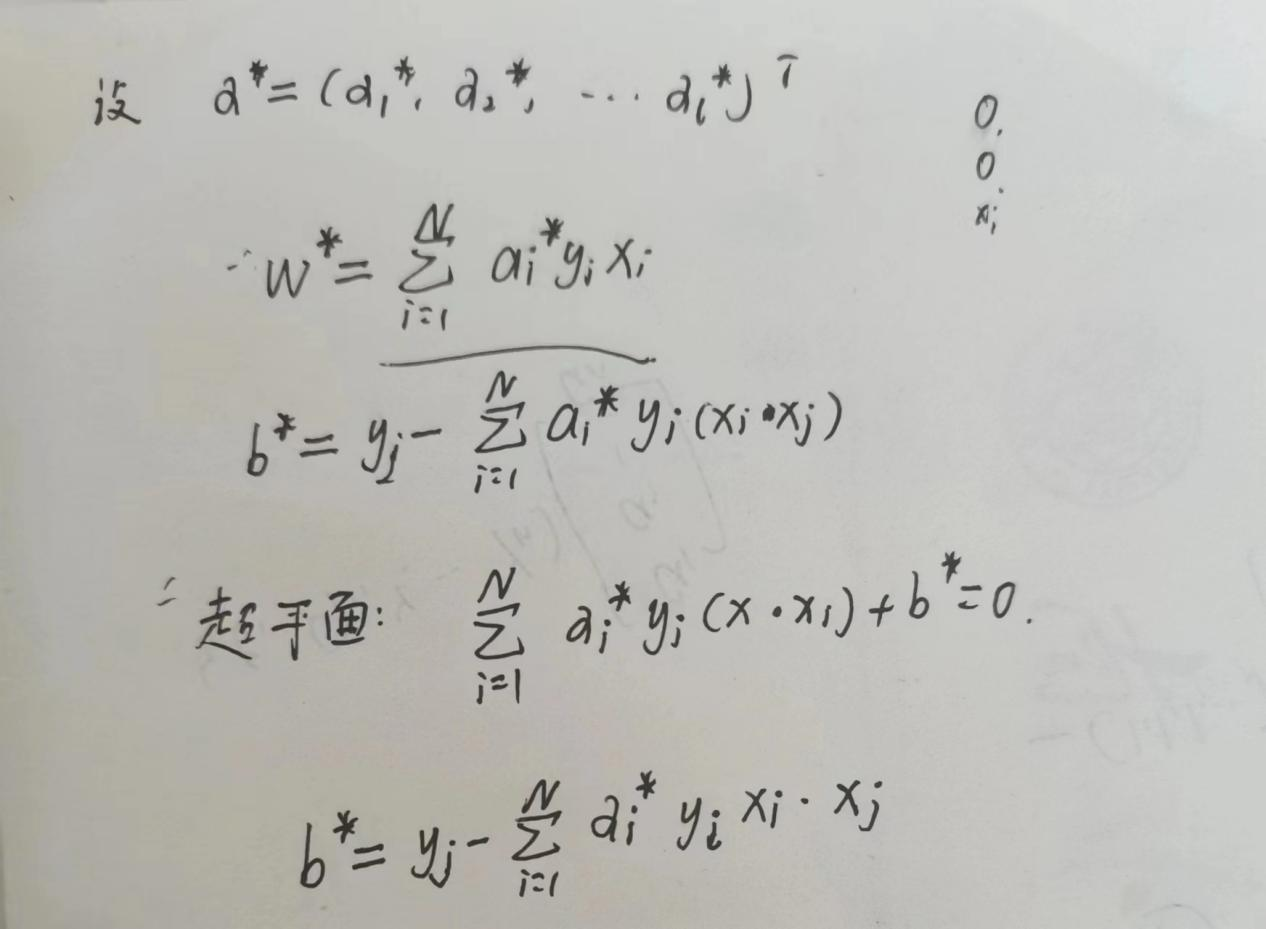 设 a* = (a₁*, a₂*, ... a_l*)ᵀ
0.
0
xᵢ
∴ w* = ∑_{i=1}^{N} aᵢ* yᵢ xᵢ
b* = yⱼ - ∑_{i=1}^{N} aᵢ* yᵢ (xᵢ · xⱼ)
∴ 超平面: ∑_{i=1}^{N} aᵢ* yᵢ (x · xᵢ) + b* = 0.
b* = yⱼ - ∑_{i=1}^{N} aᵢ* yᵢ xᵢ · xⱼ